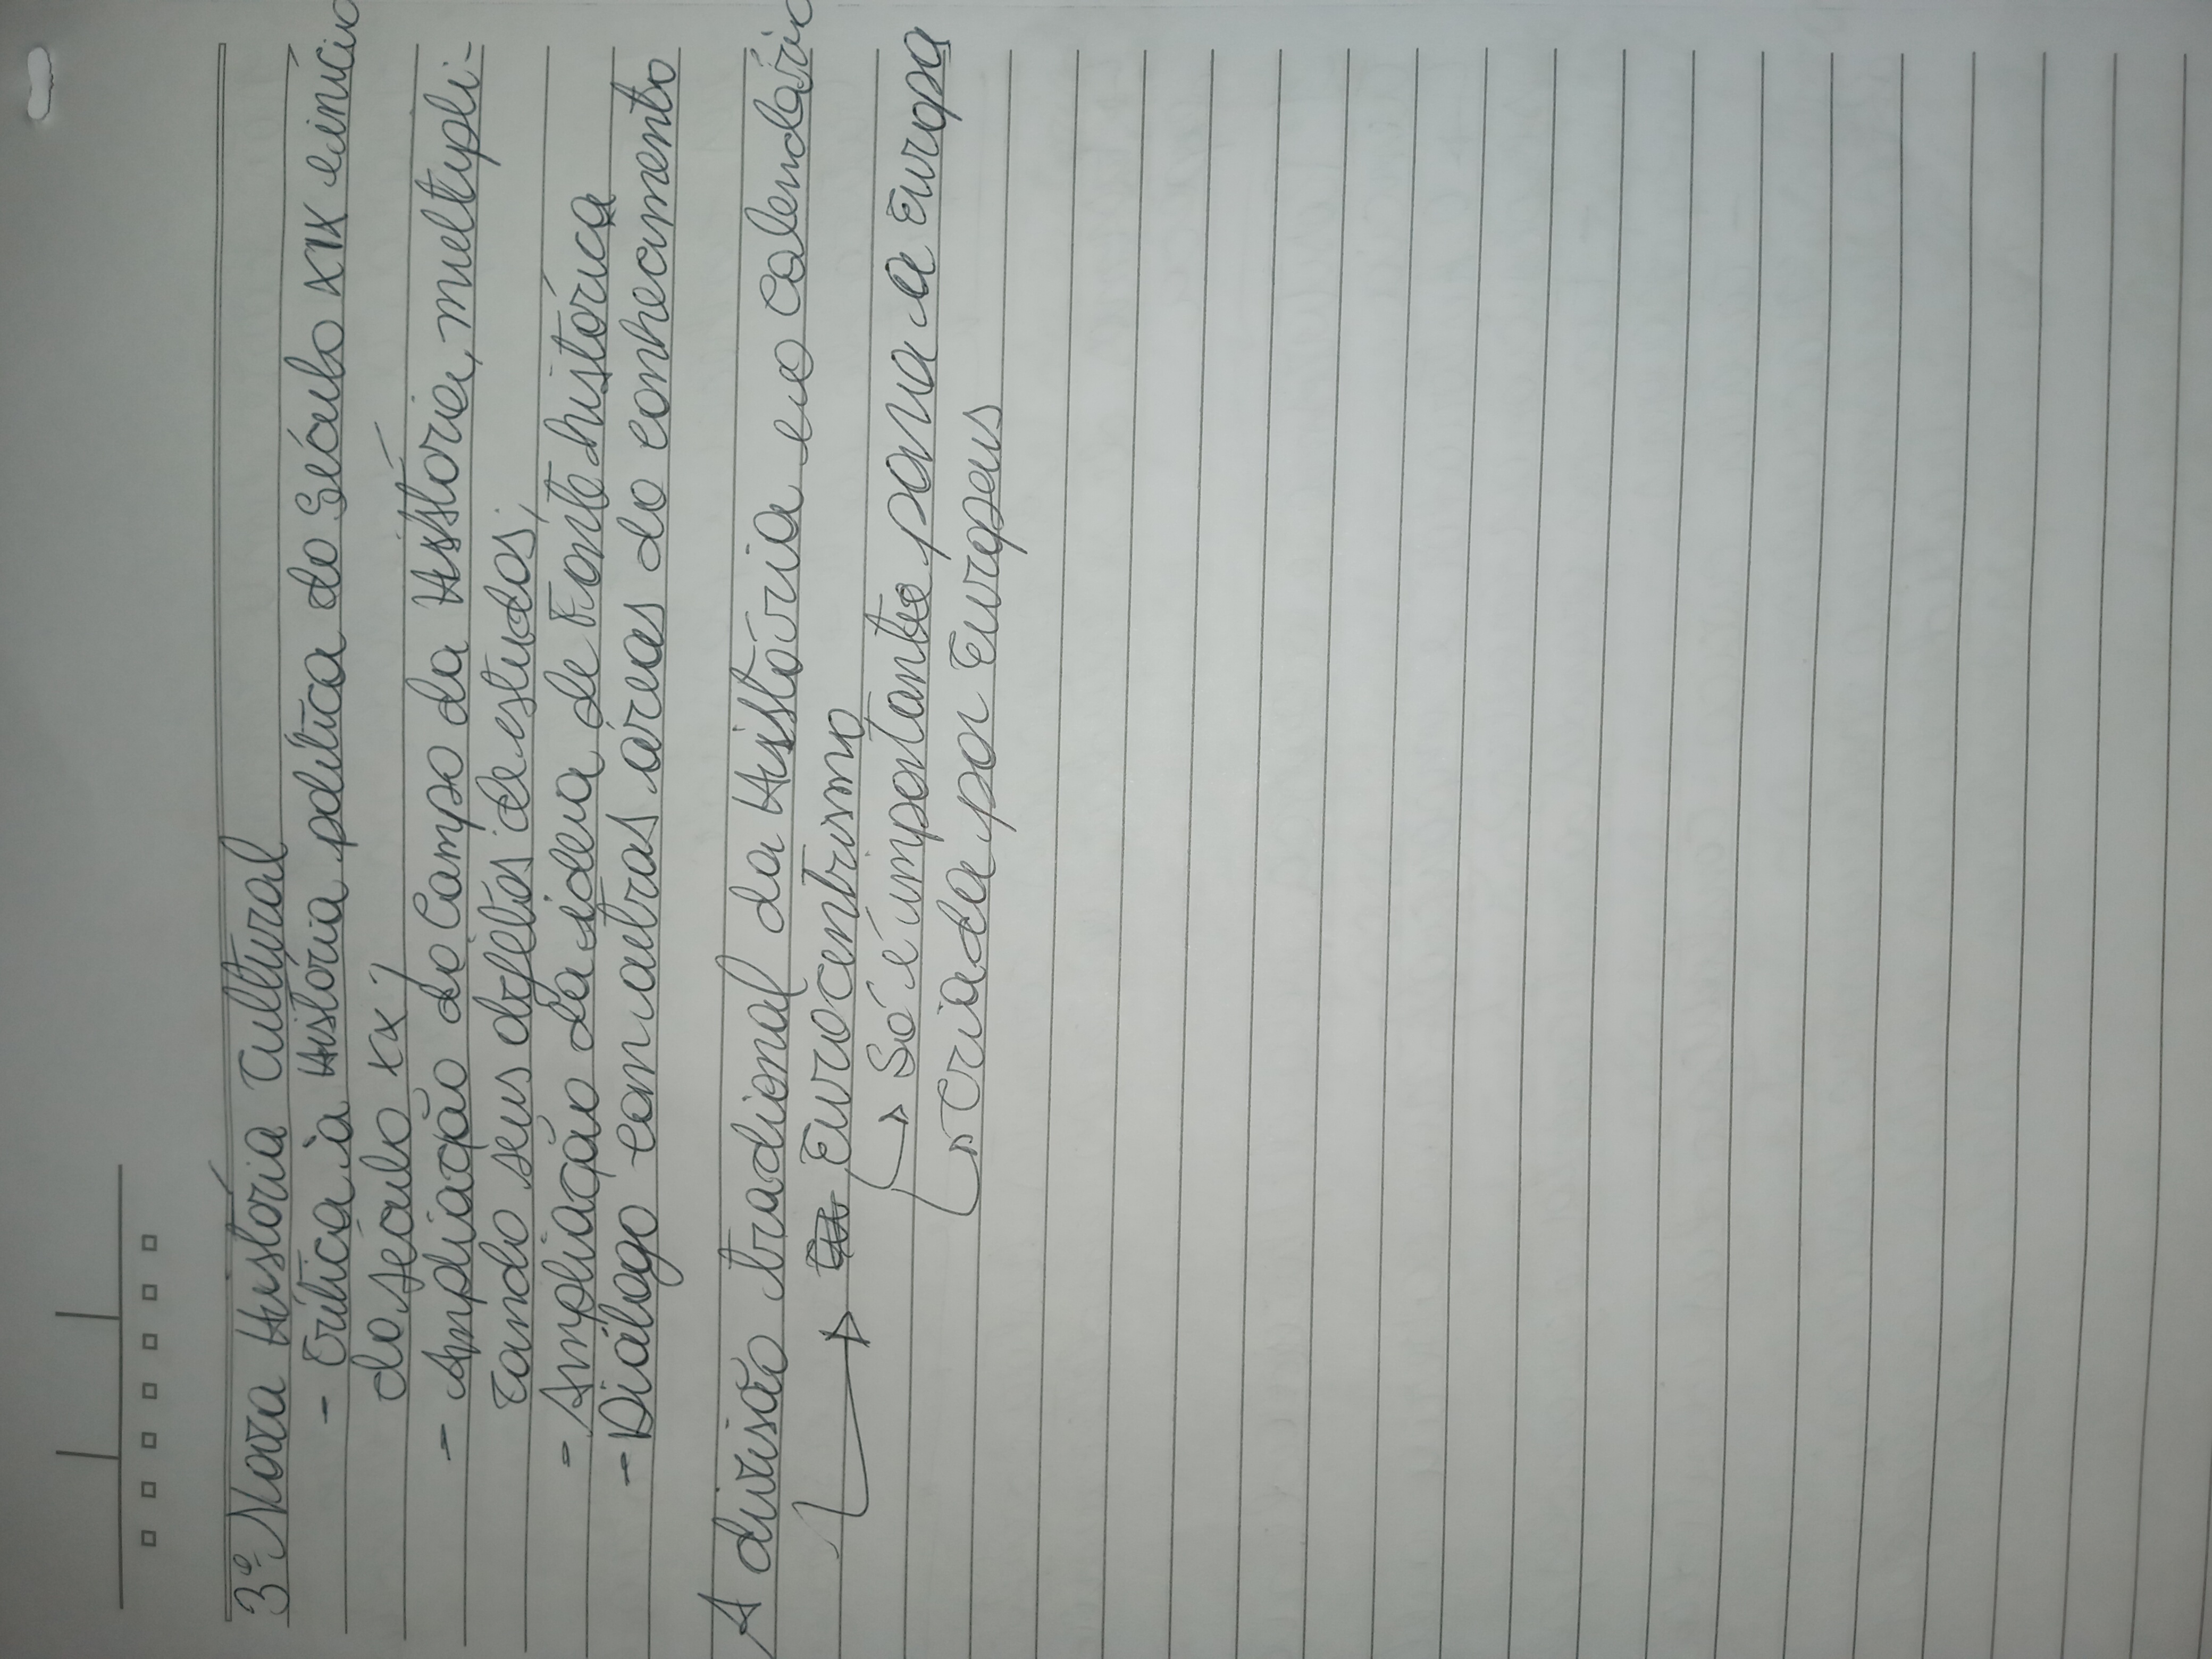 3º Nova História Cultural
- Crítica à História política do Século XIX e início
do século XX;
- Ampliação do Campo da História, multipli-
cando seus objetos de estudos;
- Ampliação da ideia de Fonte histórica
- Diálogo com outras áreas do conhecimento
A divisão tradicional da História e o Calendário
Eurocentrismo
Só é importante para a Europa
Criada por Europeus